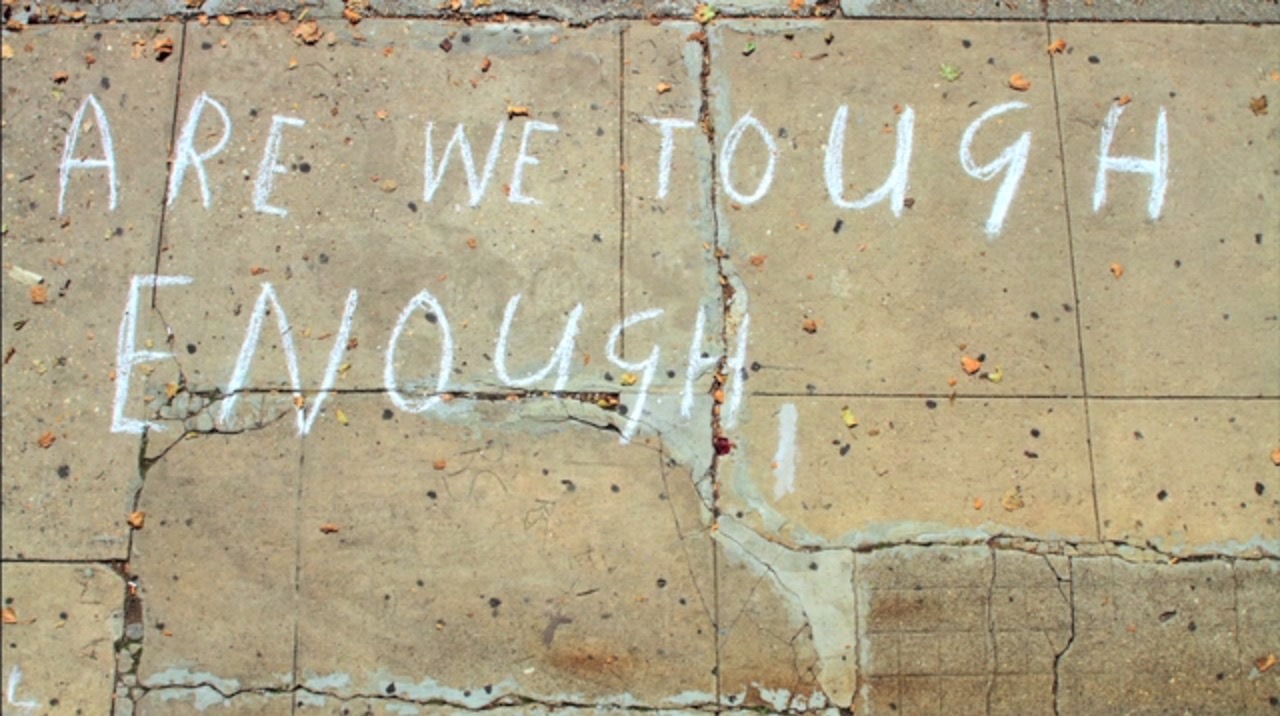 ARE WE TOUGH
ENOUGH
L